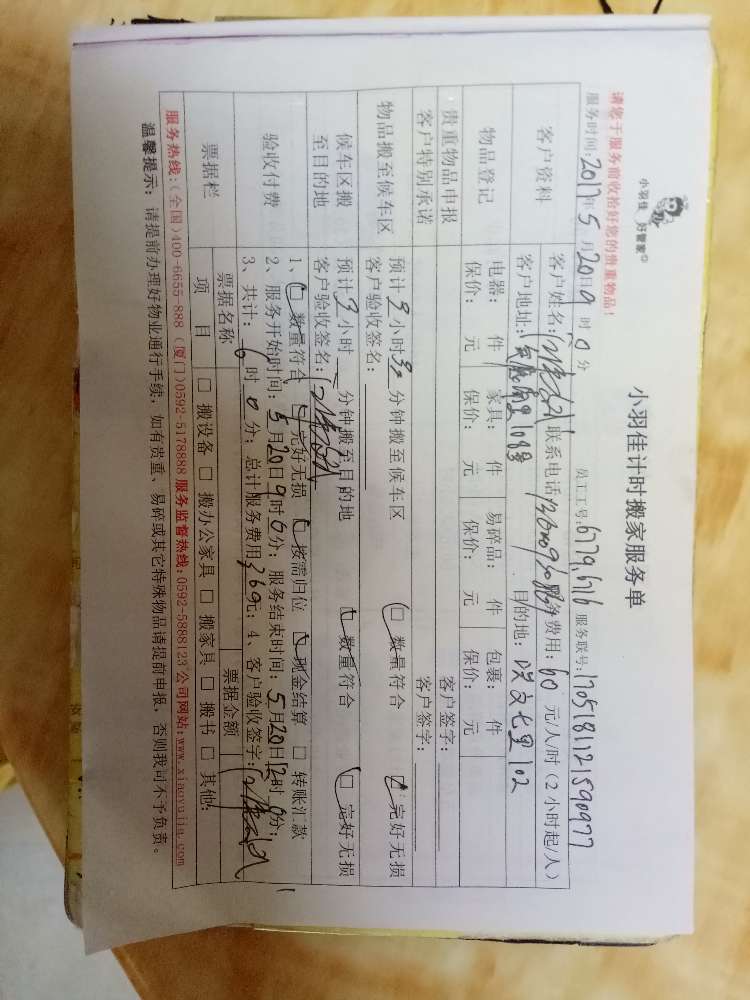 小羽佳 好管家
小羽佳计时搬家服务单
请您于服务前收拾好您的贵重物品!
员工工号:6779,676 服务联号:1705181121590977
服务时间:2017年5月20日9时0分
客户资料
客户姓名: 联系电话 费用:60元/人/时(2小时起/人)
客户地址: 目的地:
物品登记
电器: 件 家具: 件 易碎品: 件 包裹: 件
保价: 元 保价: 元 保价: 元 保价: 元
贵重物品申报 客户签字:
客户特别承诺 客户签字:
物品搬至候车区
预计 小时30分钟搬至候车区 □ 数量符合 □ 完好无损
客户验收签名:
候车区搬至目的地
预计 小时 分钟搬至目的地 □ 数量符合 □ 完好无损
客户验收签名:
验收付费
1、□ 数量符合 □ 完好无损 □ 按需归位 □ 现金结算 □ 转账汇款
2、服务开始时间:5月20日9时0分;服务结束时间:5月20日12时0分;
3、共计:6时0分;总计服务费用360元;4、客户验收签字:
票据栏
票据名称 票据金额
项目 □ 搬设备 □ 搬办公家具 □ 搬家具 □ 搬书 □ 其他:
服务热线:(全国)400-6655-888 (厦门)0592-5178888 服务监督热线:0592-5888123 公司网站:www.xiaoyujia.com
温馨提示: 请提前办理好物业通行手续,如有贵重、易碎或其它特殊物品请提前申报,否则我司不予负责。